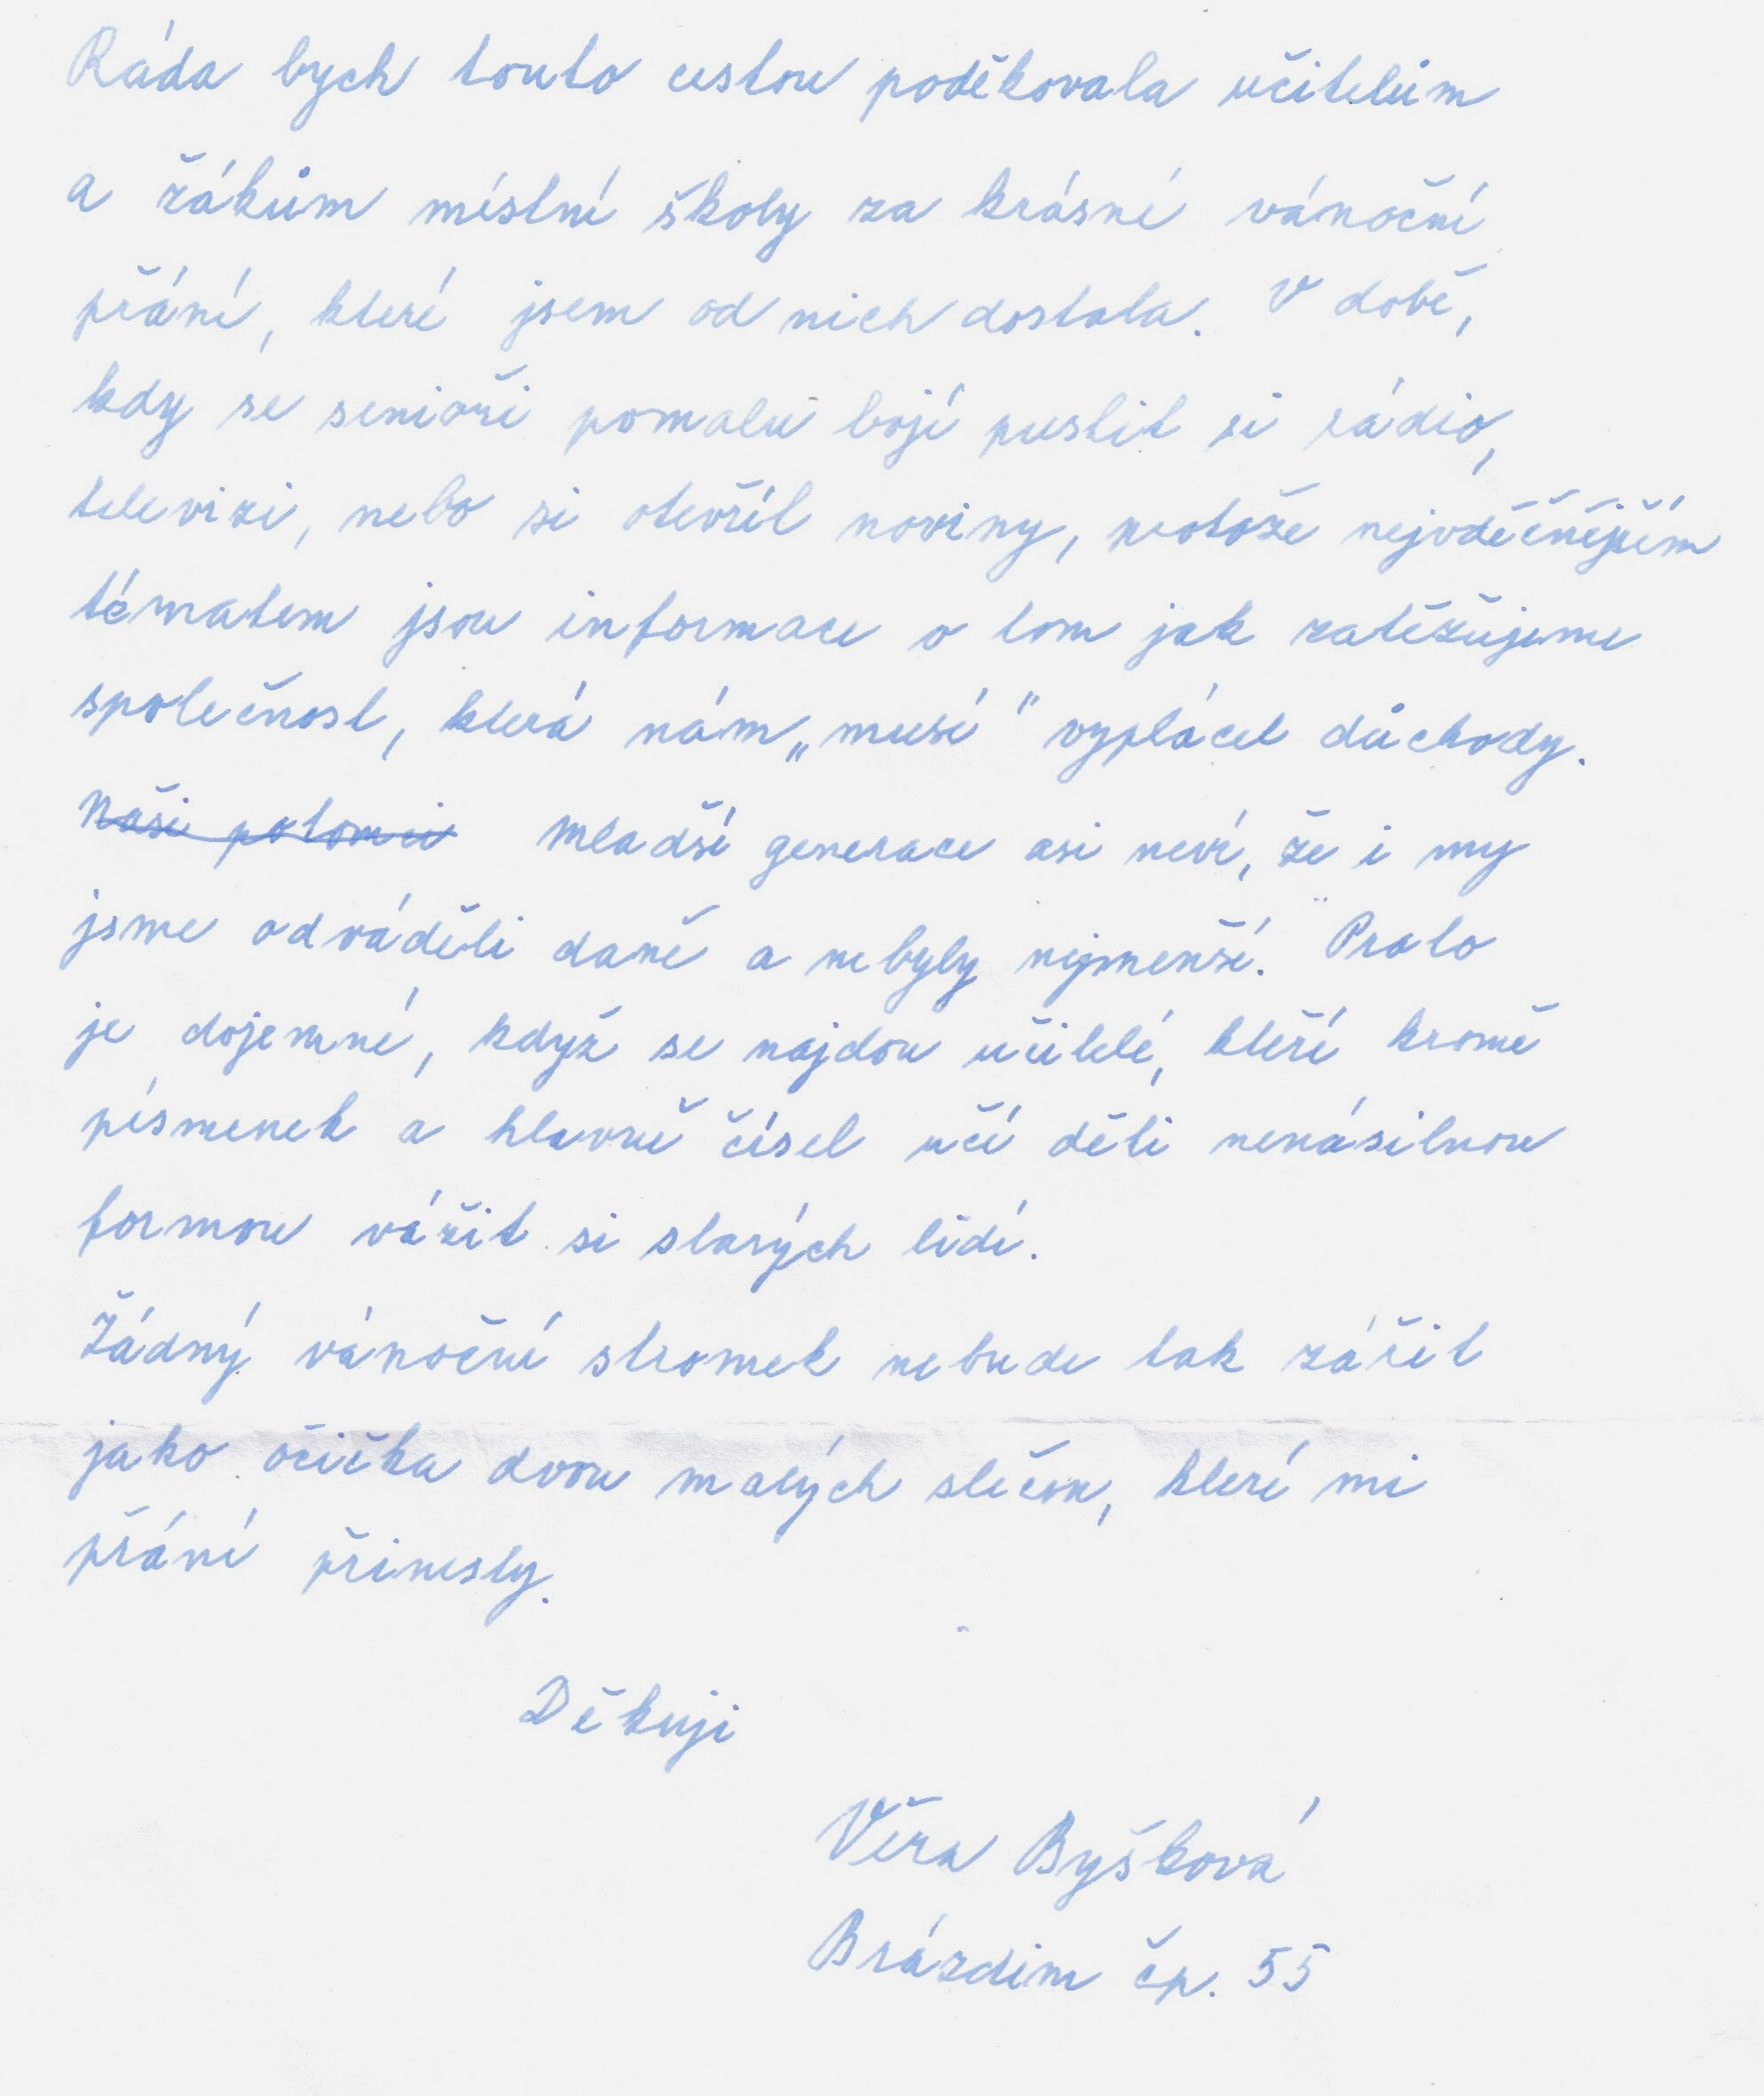 Ráda bych touto cestou poděkovala učitelům
a žákům místní školy za krásné vánoční
přání, které jsem od nich dostala. V době,
kdy se senioři pomalu bojí pustit si rádio,
televizi, nebo si otevřít noviny, protože nejvděčnějším
tématem jsou informace o tom jak zatěžujeme
společnost, která nám „musí" vyplácet důchody.
Naši potomci Mladší generace asi neví, že i my
jsme odváděli daně a nebyly nejmenší. Proto
je dojemné, když se najdou učitelé, kteří kromě
písmenek a hlavně čísel učí děti nenásilnou
formou vážit si starých lidí.
Žádný vánoční stromek nebude tak zářit
jako očička dvou malých slečen, které mi
přání přinesly.
Děkuji
Věra Byšková
Brázdim čp. 55